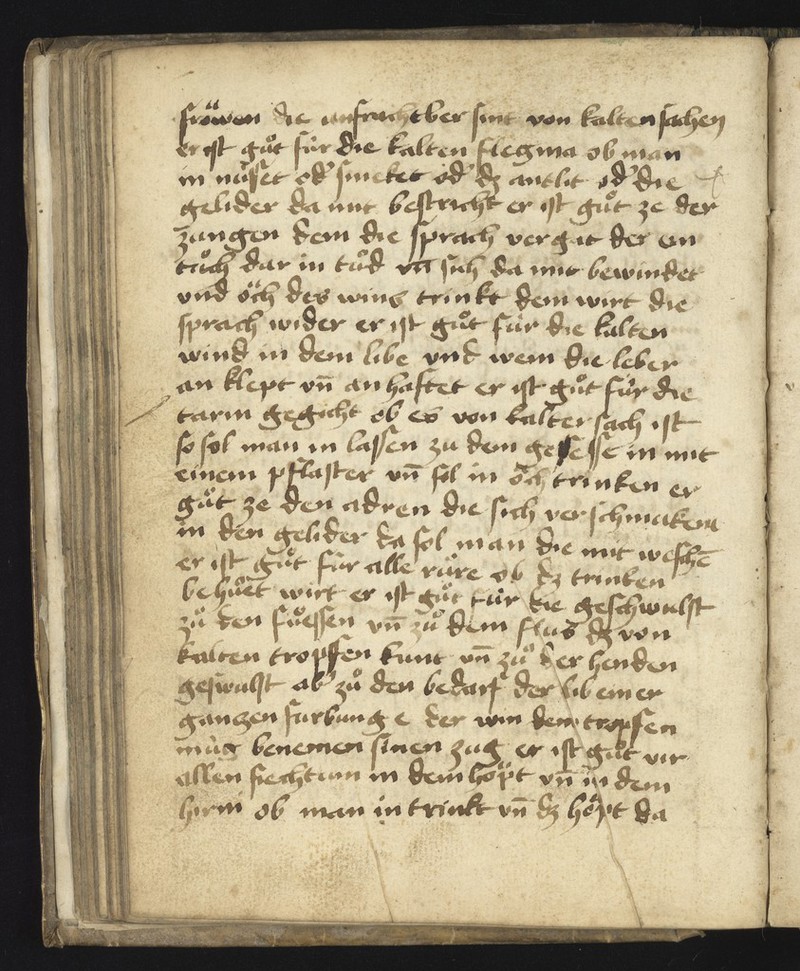 fröwen die unfruchtber sint von kalten sachen
er ist guͦt für die kalten flegma ob man
in nüsset od' smeket od' dz antlit od' die
gelider da mit bestricht er ist guͦt ze der
zungen dem die sprach vergat der ein
tuͦch dar in tuͦd vn̄ sich da mit bewindet
vnd öch des wins trinkt dem wirt die
sprach wider er ist guͦt für die kalten
wind in dem libe vnd wem die leber
an klept vn̄ an haftet er ist guͦt für die
tarm gegicht ob es von kalter sach ist
so sol man in lassen zu dem gesesse in mit
einem pflaster vn̄ sol in öch trinken er
guͦt ze den adren die sich verschmakent
in den gelider da sol man die mit weschē
er ist guͦt für alle rüre ob dz trinken
behuͤt wirt er ist guͦt für die geschwulst
zuͦ den fuͤssen vn̄ zuͦ dem flus dz von
kalten tropffen kunt vn̄ zuͦ der henden
geswulst ab' zuͦ den bedarf der lib einer
ganczen furbung e der win dem tropfen
müg benemen sinen zug er ist guͦt vir
allen siechtum in dem höpt vn̄ in dem
hirni ob man in trinkt vn̄ dz höpt da